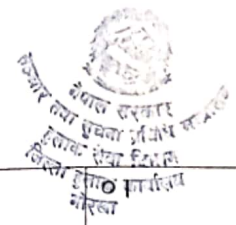 नेपाल सरकार
सञ्चार तथा सूचना प्रविधि मन्त्रालय
हुलाक सेवा विभाग
जिल्ला हुलाक कार्यालय
गोरखा